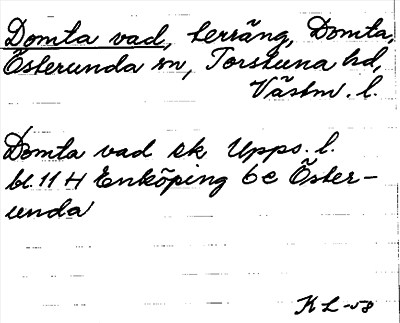 Domta vad, terräng, Domta,
Österunda sn, Torstuna hd,
Västm. l.
Domta vad ek Upps. l.
bl. 11 H Enköping 6 c Öster-
unda
KL -58